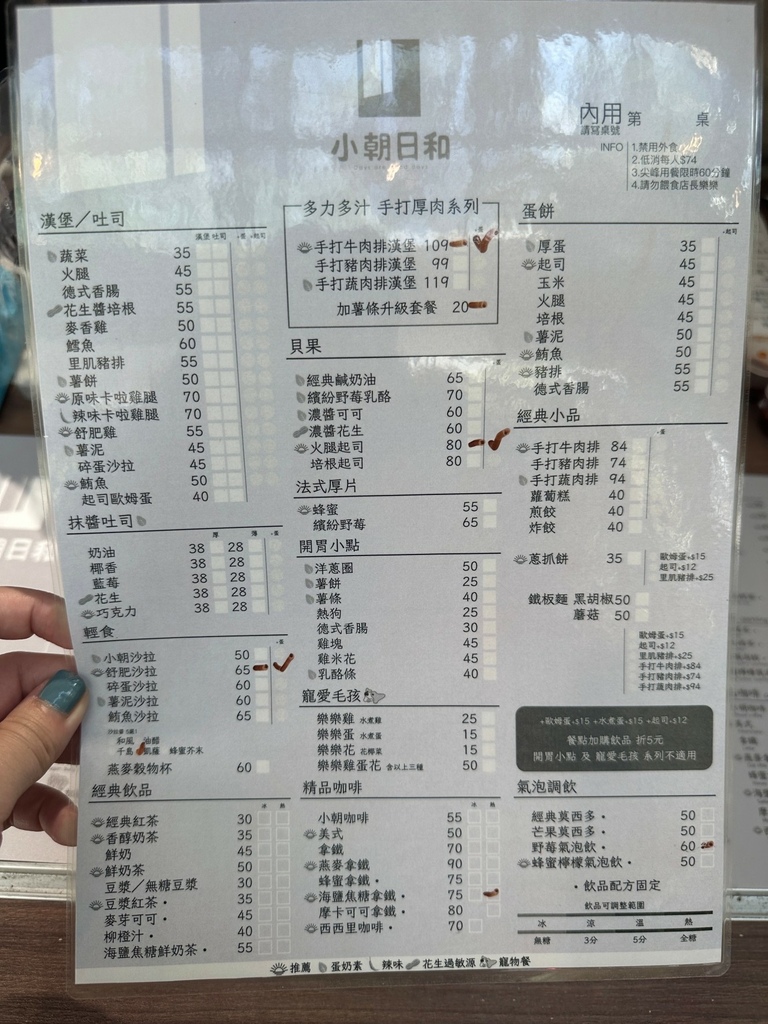 小朝日和
內用 第 桌
請寫桌號
INFO
1.禁用外食
2.低消每人$74
3.尖峰用餐限時60分鐘
4.請勿餵食店長樂樂
漢堡／吐司
漢堡 吐司 +蛋 +起司
蔬菜 35
火腿 45
德式香腸 55
花生醬培根 55
麥香雞 50
鱈魚 60
里肌豬排 55
薯餅 50
原味卡啦雞腿 70
辣味卡啦雞腿 70
舒肥雞 55
薯泥 45
碎蛋沙拉 45
鮪魚 50
起司歐姆蛋 40
抹醬吐司
厚 薄 +蛋
奶油 38 28
椰香 38 28
藍莓 38 28
花生 38 28
巧克力 38 28
輕食
+蛋
小朝沙拉 50
舒肥沙拉 65
碎蛋沙拉 60
薯泥沙拉 60
鮪魚沙拉 65
和風 油醋
千島 凱薩 蜂蜜芥末
燕麥穀物杯 60
經典飲品
冰 熱
經典紅茶 30
香醇奶茶 35
鮮奶 45
鮮奶茶 50
豆漿／無糖豆漿 30
豆漿紅茶• 35
麥芽可可• 45
柳橙汁• 40
海鹽焦糖鮮奶茶• 55
多力多汁 手打厚肉系列
手打牛肉排漢堡 109
手打豬肉排漢堡 99
手打蔬肉排漢堡 119
加薯條升級套餐 20
貝果
+蛋
經典鹹奶油 65
繽紛野莓乳酪 70
濃醬可可 60
濃醬花生 60
火腿起司 80
培根起司 80
法式厚片
蜂蜜 55
繽紛野莓 65
開胃小點
洋蔥圈 50
薯餅 25
薯條 40
熱狗 25
德式香腸 30
雞塊 45
雞米花 45
乳酪條 40
寵愛毛孩
樂樂雞 水煮雞 25
樂樂蛋 水煮蛋 15
樂樂花 花椰菜 15
樂樂雞蛋花 含以上三種 50
精品咖啡
冰 熱
小朝咖啡 55
美式 50
拿鐵 70
燕麥拿鐵 90
蜂蜜拿鐵• 75
海鹽焦糖拿鐵• 75
摩卡可可拿鐵• 80
西西里咖啡• 70
蛋餅
+起司
厚蛋 35
起司 45
玉米 45
火腿 45
培根 45
薯泥 50
鮪魚 50
豬排 55
德式香腸 55
經典小品
+蛋
手打牛肉排 84
手打豬肉排 74
手打蔬肉排 94
蘿蔔糕 40
煎餃 40
炸餃 40
蔥抓餅 35
歐姆蛋+$15
起司+$12
里肌豬排+$25
鐵板麵 黑胡椒 50
蘑菇 50
歐姆蛋+$15
起司+$12
里肌豬排+$25
手打牛肉排+$84
手打豬肉排+$74
手打蔬肉排+$94
+歐姆蛋+$15 +水煮蛋+$15 +起司+$12
餐點加購飲品 折5元
開胃小點 及 寵愛毛孩 系列不適用
氣泡調飲
經典莫西多• 50
芒果莫西多• 50
野莓氣泡飲• 60
蜂蜜檸檬氣泡飲• 50
•飲品配方固定
飲品可調整範圍
冰 涼 溫 熱
無糖 3分 5分 全糖
推薦 蛋奶素 辣味 花生過敏源 寵物餐